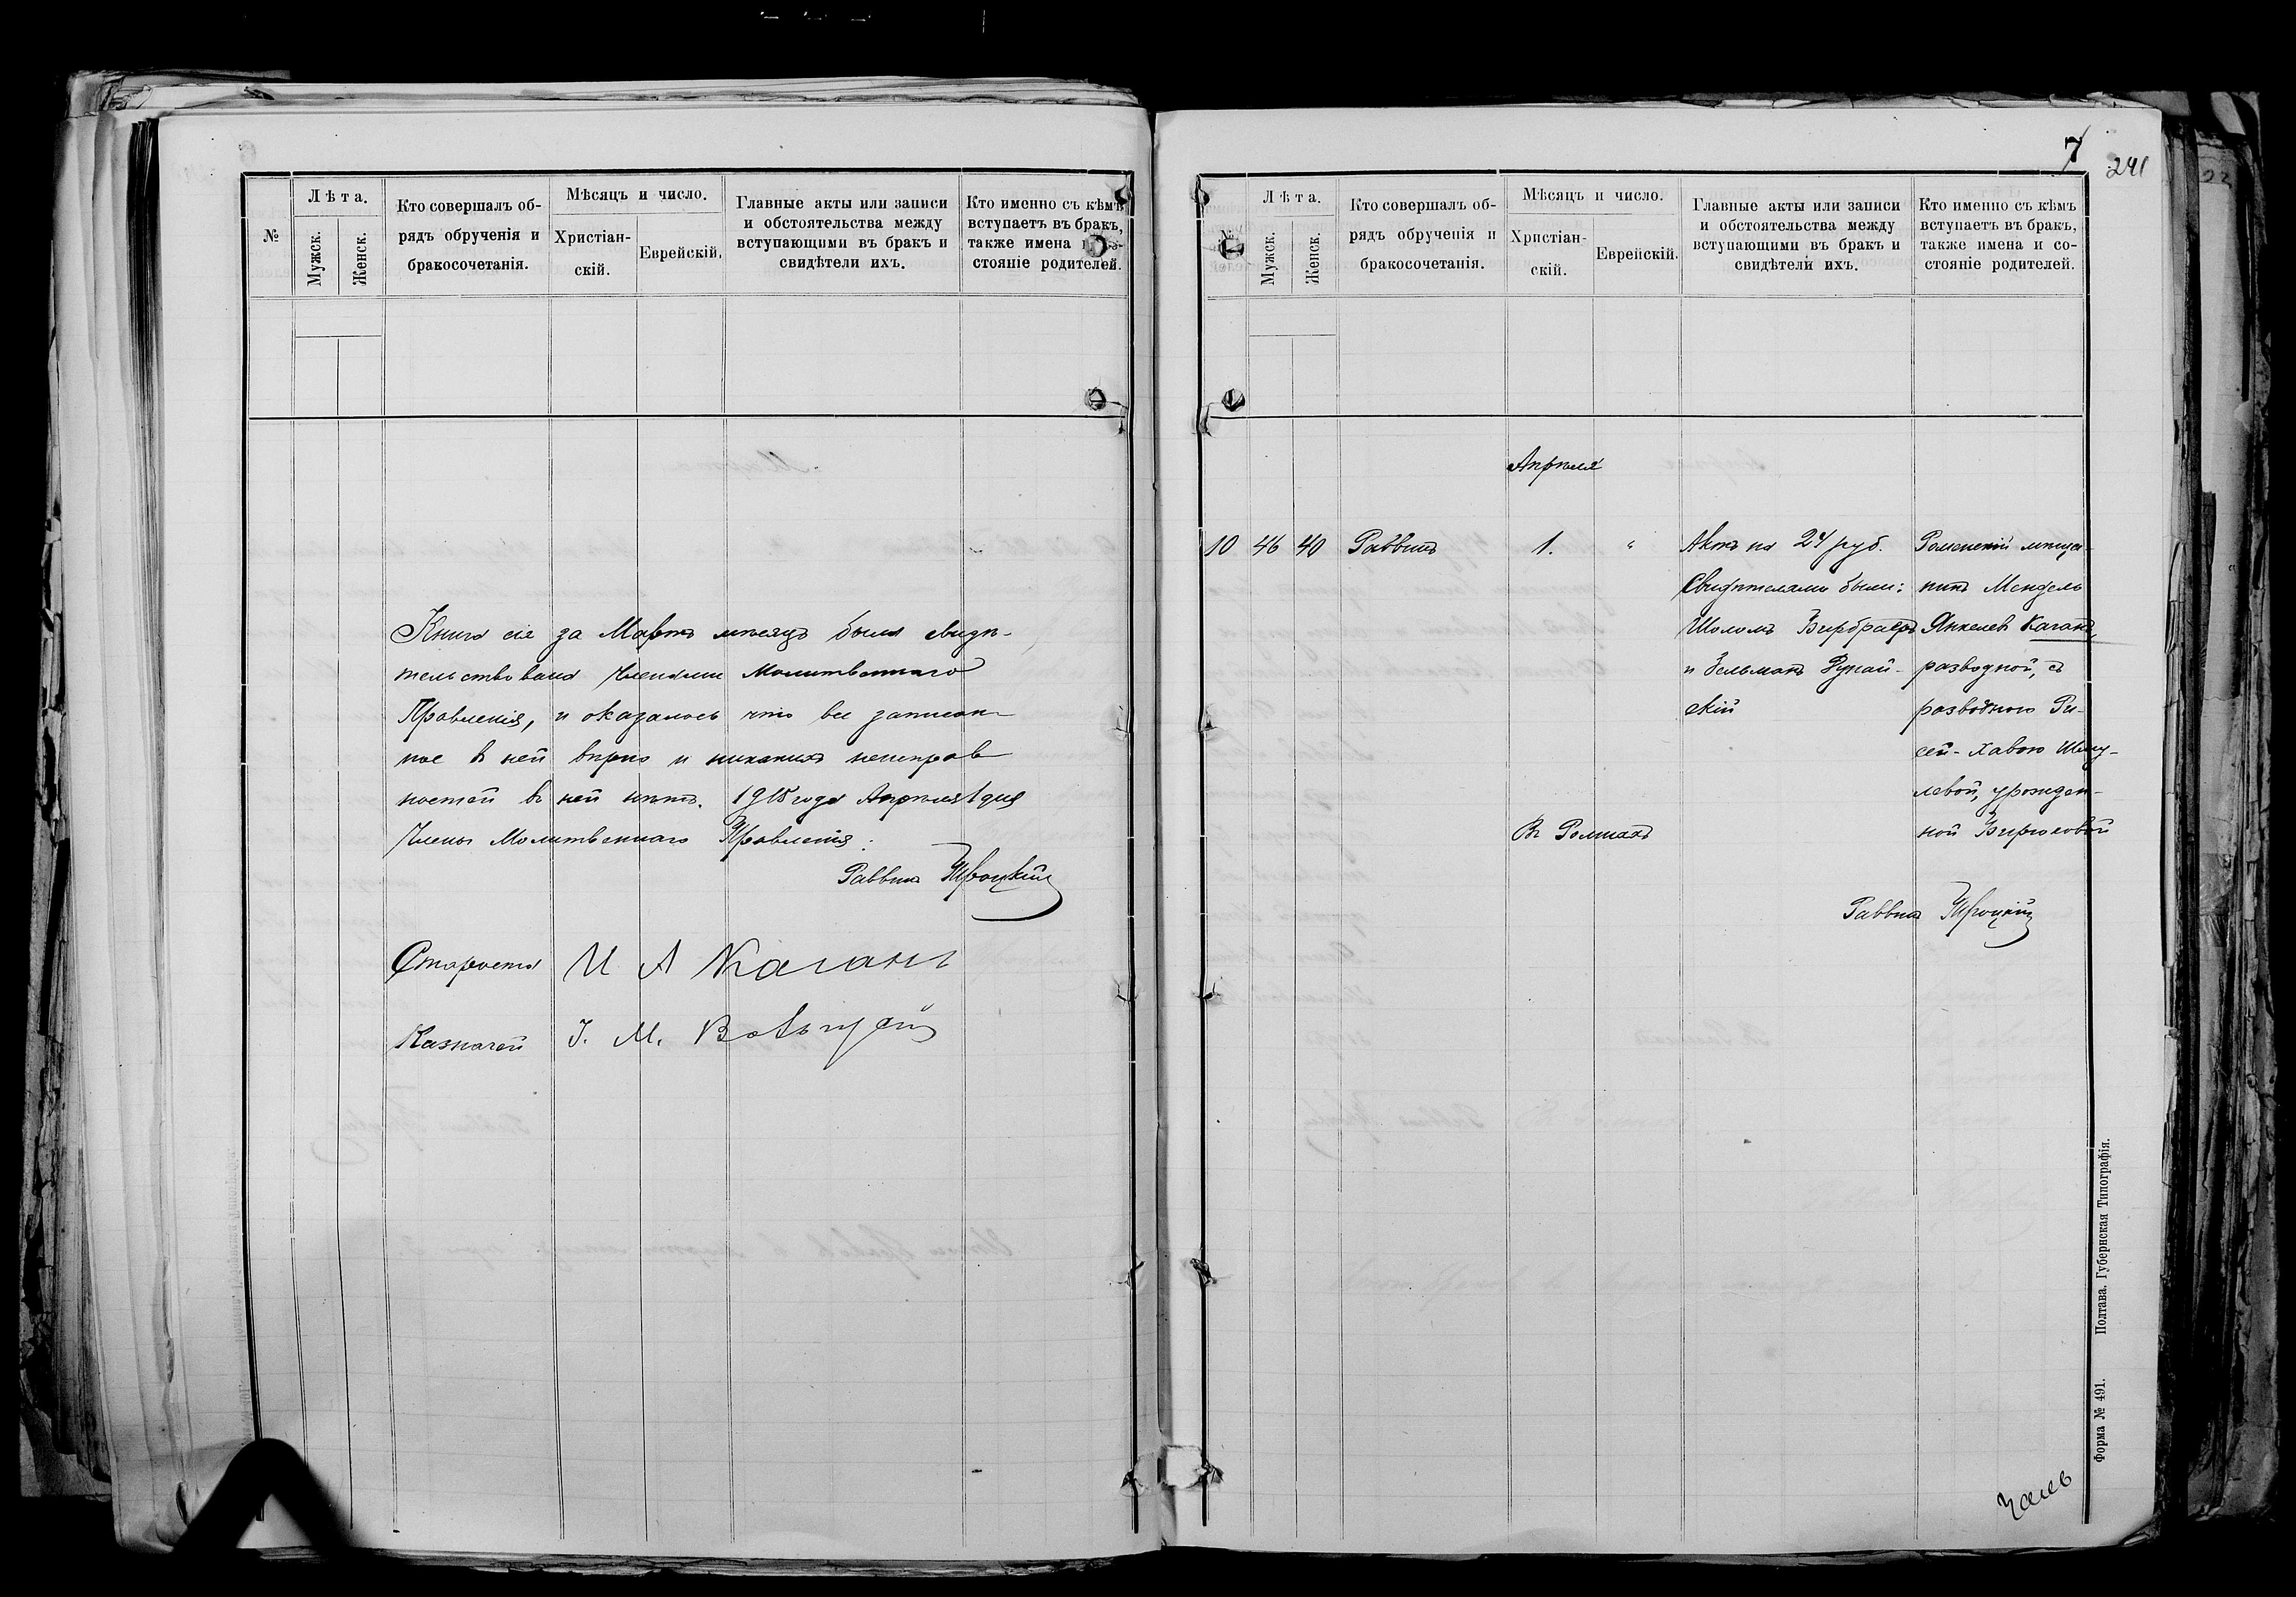 №
Лѣта.
Мужск.
Женск.
Кто совершалъ об-
рядъ обрученія и
бракосочетанія.
Мѣсяцъ и число.
Христіан-
скій.
Еврейскій.
Главные акты или записи
и обстоятельства между
вступающими въ бракъ и
свидѣтели ихъ.
Кто именно съ кѣмъ
вступаетъ въ бракъ,
также имена и со-
стояніе родителей.
Книга сія за Мартъ мѣсяцъ была свидѣ-
тельствована Членами Молитвеннаго
Правленія, и оказалось что все записан-
ное въ ней вѣрно и никакихъ неисправ
ностей въ ней нѣтъ. 1915 года Апрѣля 1 дня
Члены Молитвеннаго Правленія:
Раввинъ Троцкій
Староста И А Каганъ
Казначей І. М.
7
241
№
Лѣта.
Мужск.
Женск.
Кто совершалъ об-
рядъ обрученія и
бракосочетанія.
Мѣсяцъ и число.
Христіан-
скій.
Еврейскій.
Главные акты или записи
и обстоятельства между
вступающими въ бракъ и
свидѣтели ихъ.
Кто именно съ кѣмъ
вступаетъ въ бракъ,
также имена и со-
стояніе родителей.
Апрѣля
10 46 40 Раввинъ 1. " Актъ на 24 руб. Роменскій мѣща-
Свидѣтелями были: нинъ Мендель
Шоломъ Янкелевъ Каганъ,
и Зельманъ разводной, съ
скій разводною Ри-
сей-Хавою Шму-
левой, урожден-
Въ Ромнахъ ной Бирюковой
Раввинъ Троцкій
Форма № 491. Полтава. Губернская Типографія.